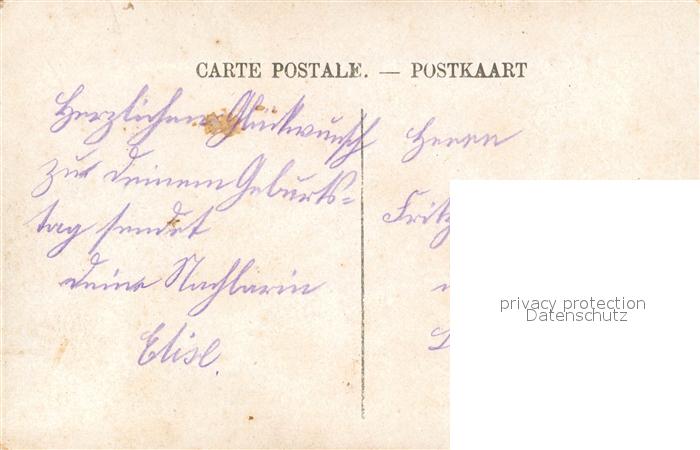 CARTE POSTALE. — POSTKAART
Herzlichen Glückwunsch
zu deinem Geburts-
tag sendet
deine Nachbarin
Elise.
Herrn
Fritz
privacy protection
Datenschutz